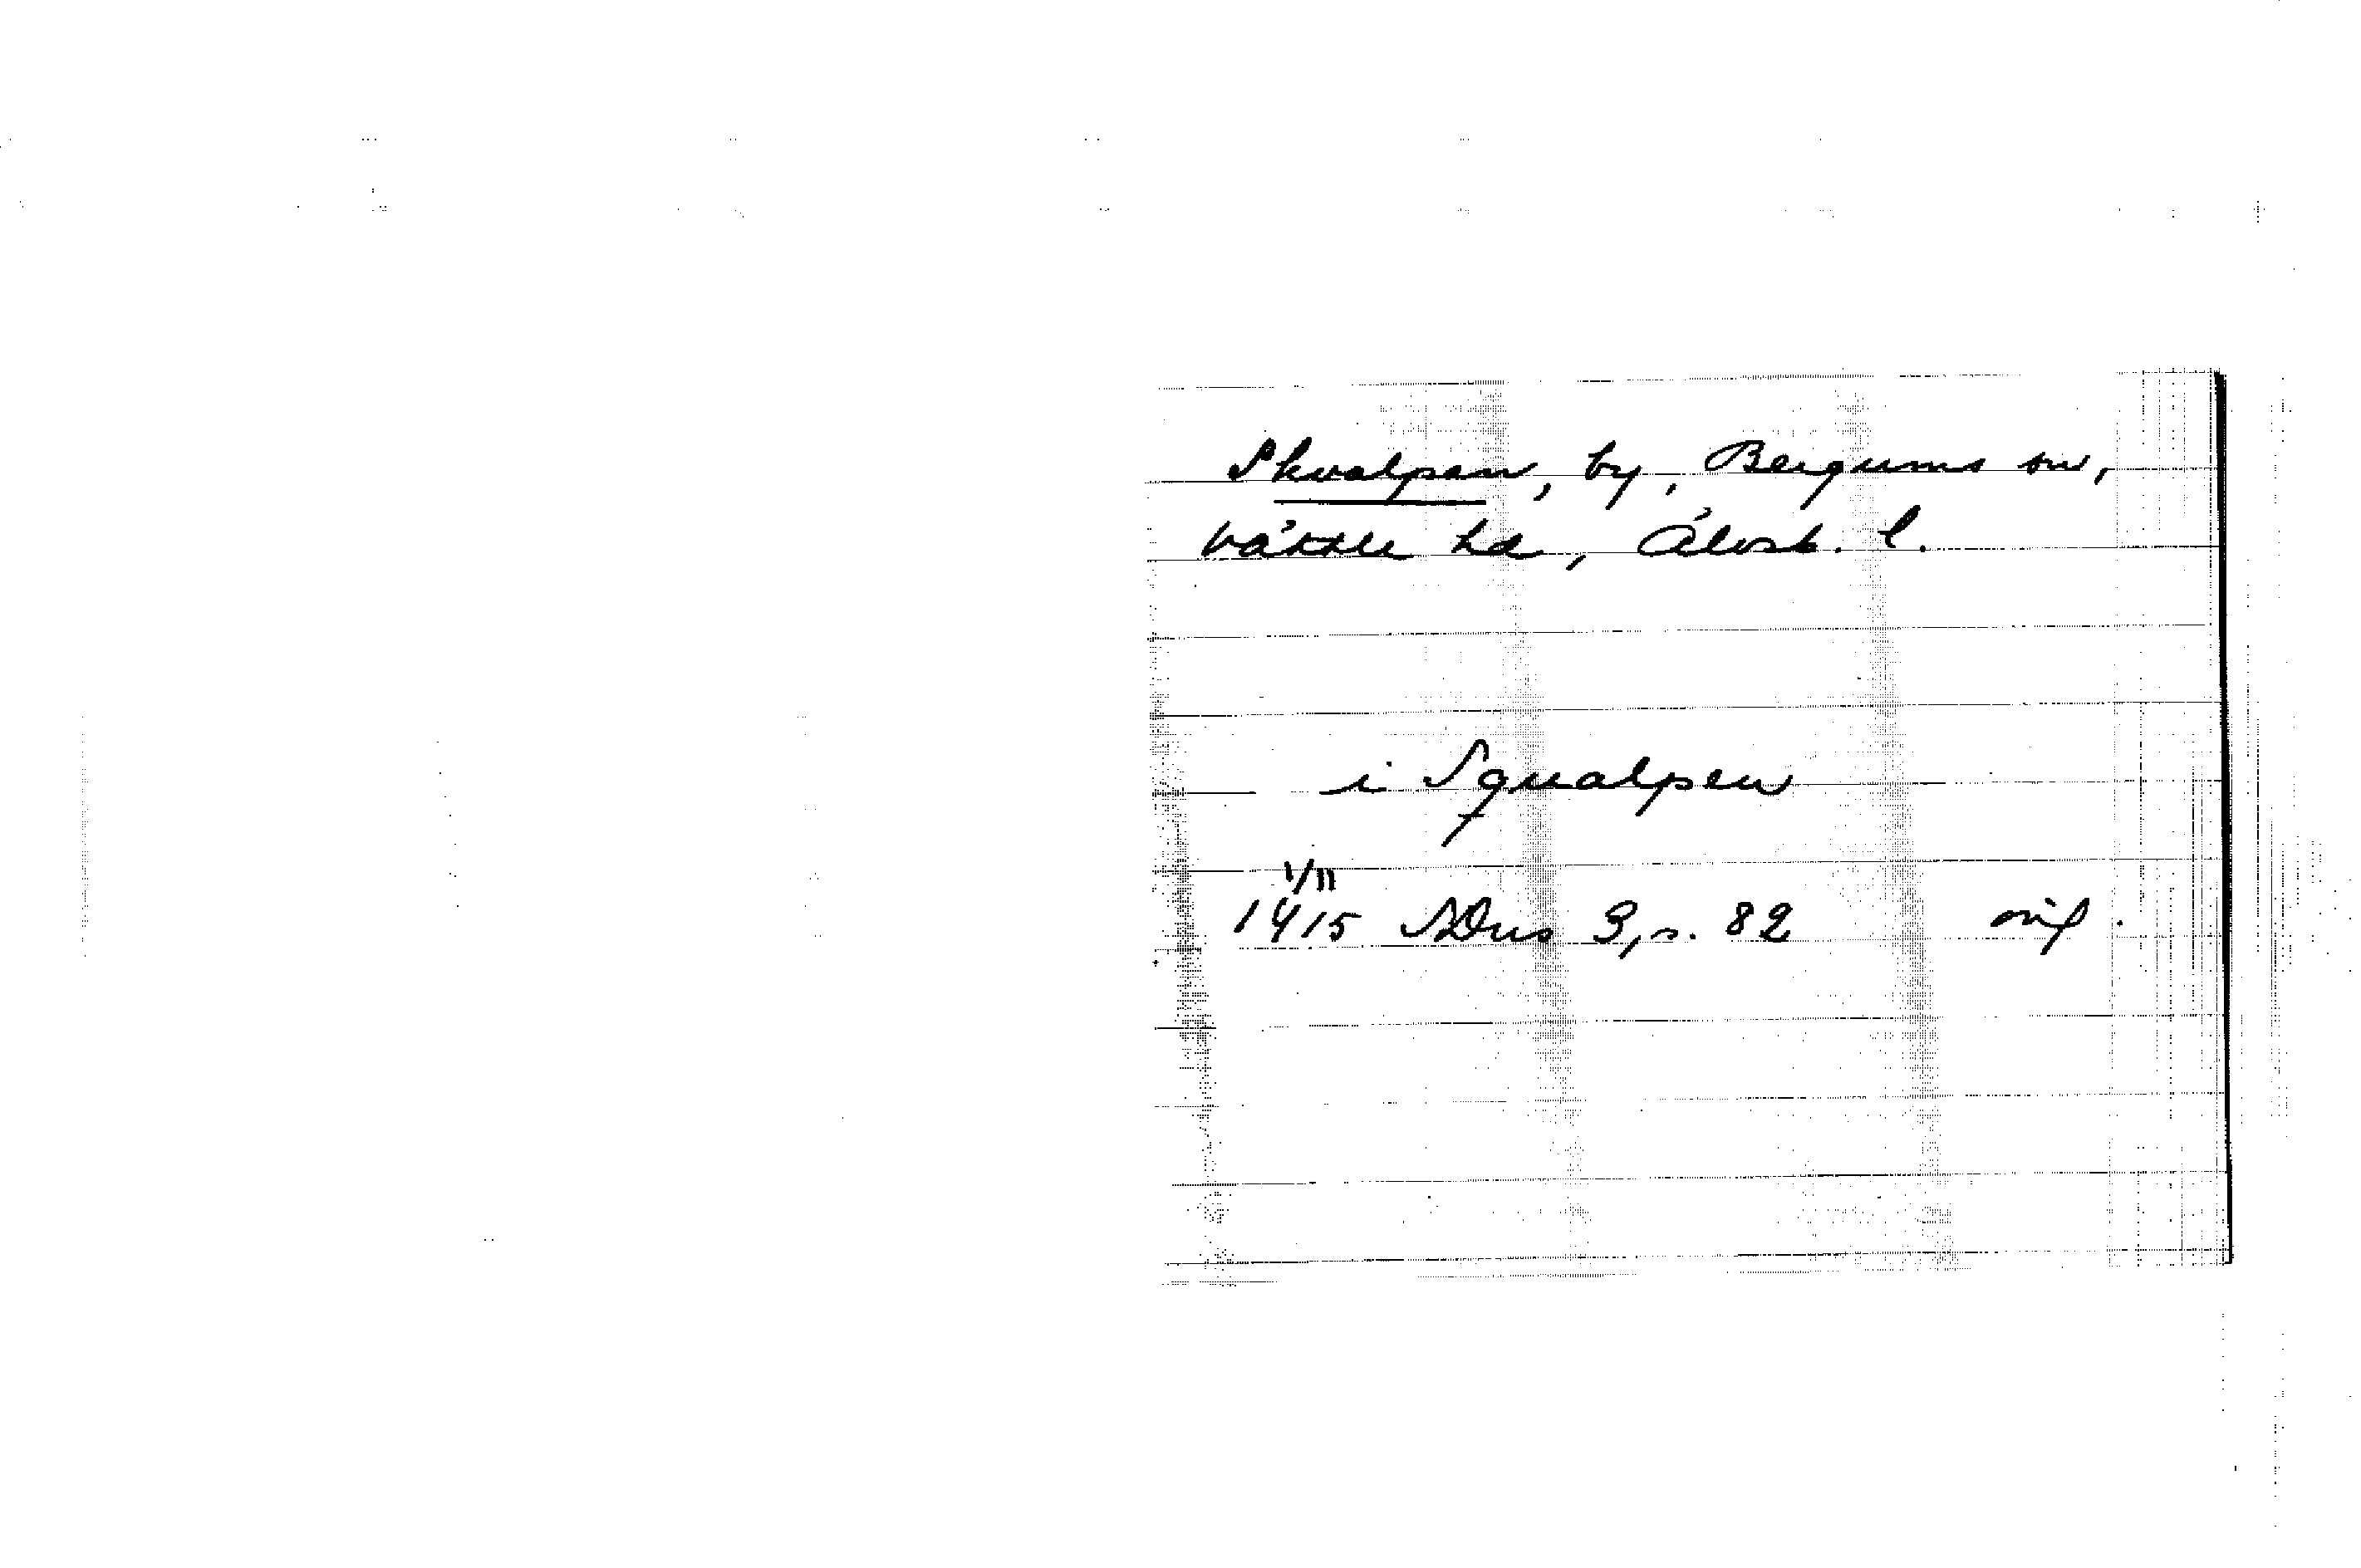 Skvalpen, by, Bergums sn,
Vättle hd, Älvsb. l.
i Squalpen
1/11
1415 SDns 3, s. 82 orig.